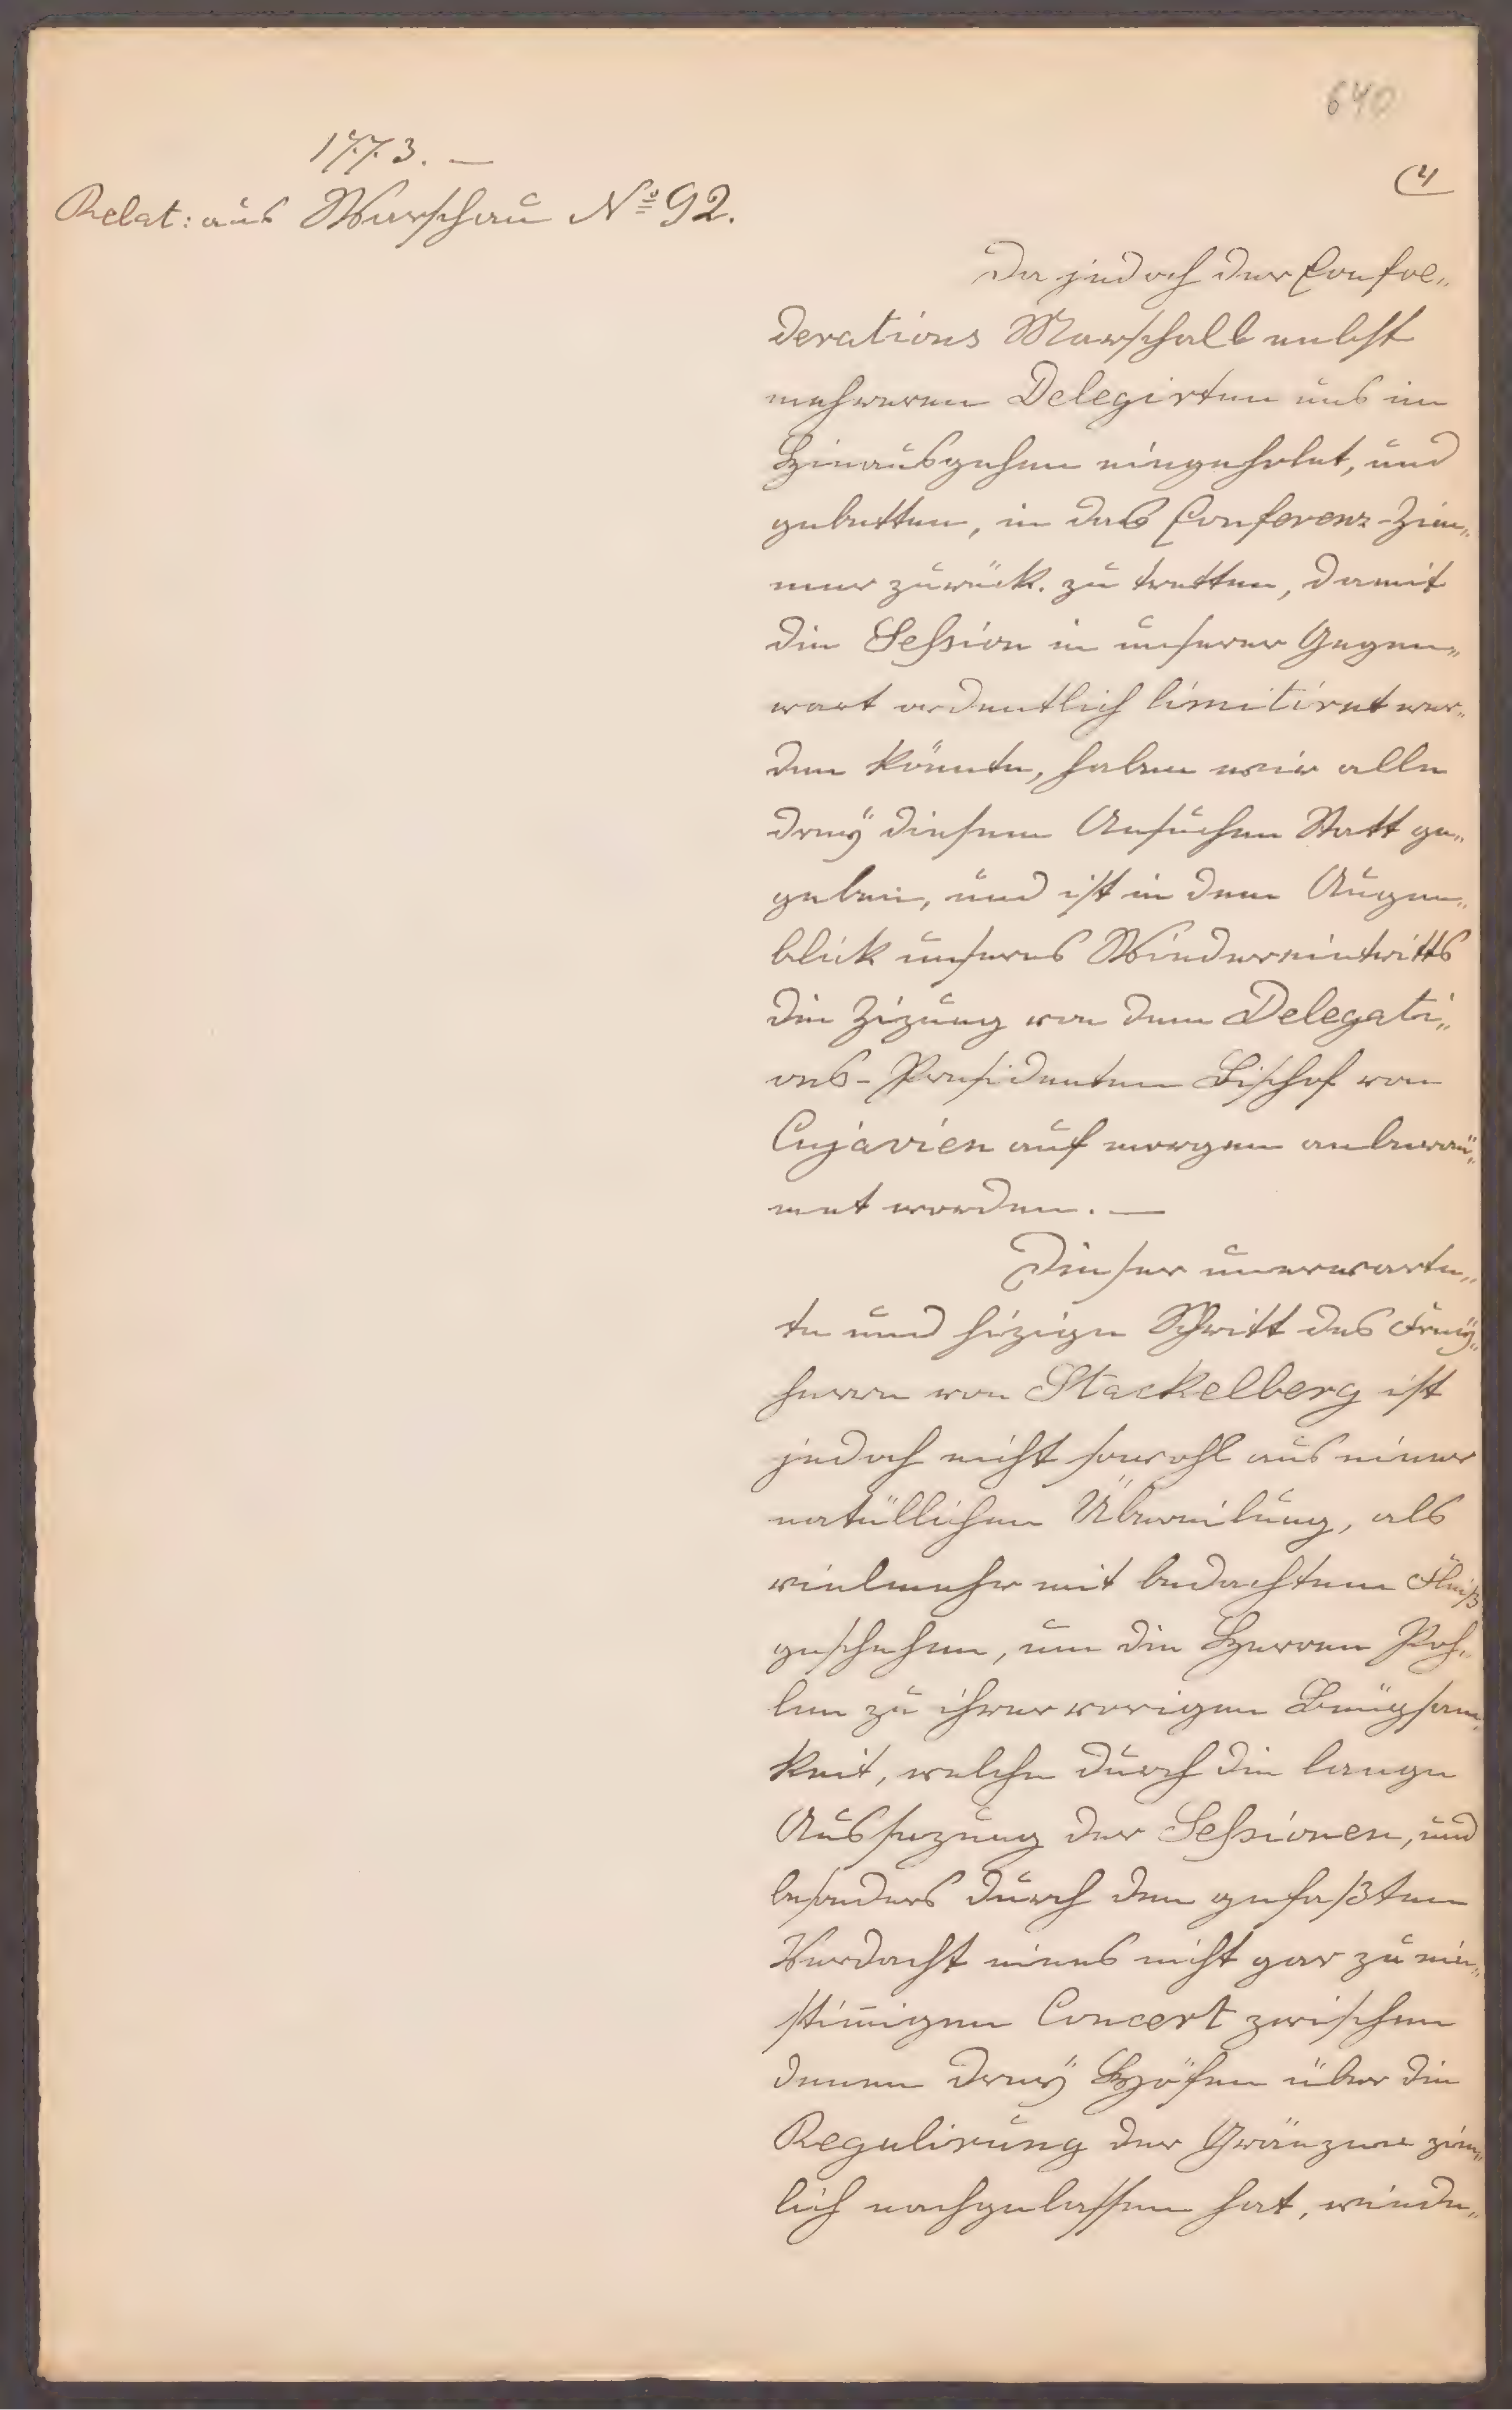 640
1773. —
(4
Relat: aus Warschau No 92.
Da jedoch der Confoe„
derations Marschall nebst
mehreren Delegirten uns im
Hinausgehen eingeholet, und
gebetten, in das Conferenz-Zim„
mer zurück zu tretten, damit
die Session in unserer Gegen„
wart ordentlich limitiret wer„
den könnte, haben wir alle
dreÿ diesem Ansuchen Statt ge„
geben, und ist in dem Augen„
blick unseres Wiedereintritts
die Sizung von dem Delegati„
ons-Presidenten Bischof von
Cujavien auf morgen anberau„
met worden. —
Dieser unerwarte„
te und hizige Schritt des Freÿ„
herrn von Stackelberg ist
jedoch nicht sowohl aus einer
natüllichen Übereilung, als
vielmehr mit bedachtem Fleiß
geschehen, um die Herren Poh„
len zu ihrer vorigen Beügsam„
keit, welche durch die lange
Aussezung der Sessionen, und
besonders durch den gefaßten
Verdacht eines nicht gar zu ein„
stim̄igen Concert zwischen
denen dreÿ Höfen über die
Regulirung der Gränzen ziem„
lich nachgelassen hat, wiede„